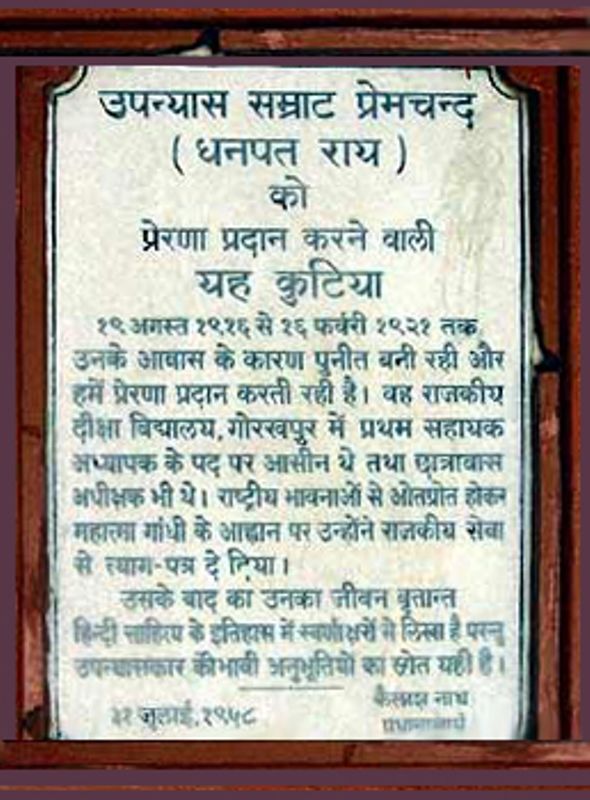 उपन्यास सम्राट प्रेमचन्द
( धनपत राय )
को
प्रेरणा प्रदान करने वाली
यह कुटिया
१९ अगस्त १९१६ से १६ फर्वरी १९२१ तक
उनके आवास के कारण पुनीत बनी रही और
हमें प्रेरणा प्रदान करती रही है। वह राजकीय
दीक्षा विद्यालय, गोरखपुर में प्रथम सहायक
अध्यापक के पद पर आसीन थे तथा छात्रावास
अधीक्षक भी थे। राष्ट्रीय भावनाओं से ओतप्रोत होकर
महात्मा गांधी के आह्वान पर उन्होंने राजकीय सेवा
से त्याग-पत्र दे दिया।
उसके बाद का उनका जीवन वृतान्त
हिन्दी साहित्य के इतिहास में स्वर्णाक्षरों से लिखा है परन्तु
उपन्यासकार की भावी अनुभूतियों का स्रोत यही है।
कैलाश नाथ
जुलाई, १९५८
प्रधानाचार्य